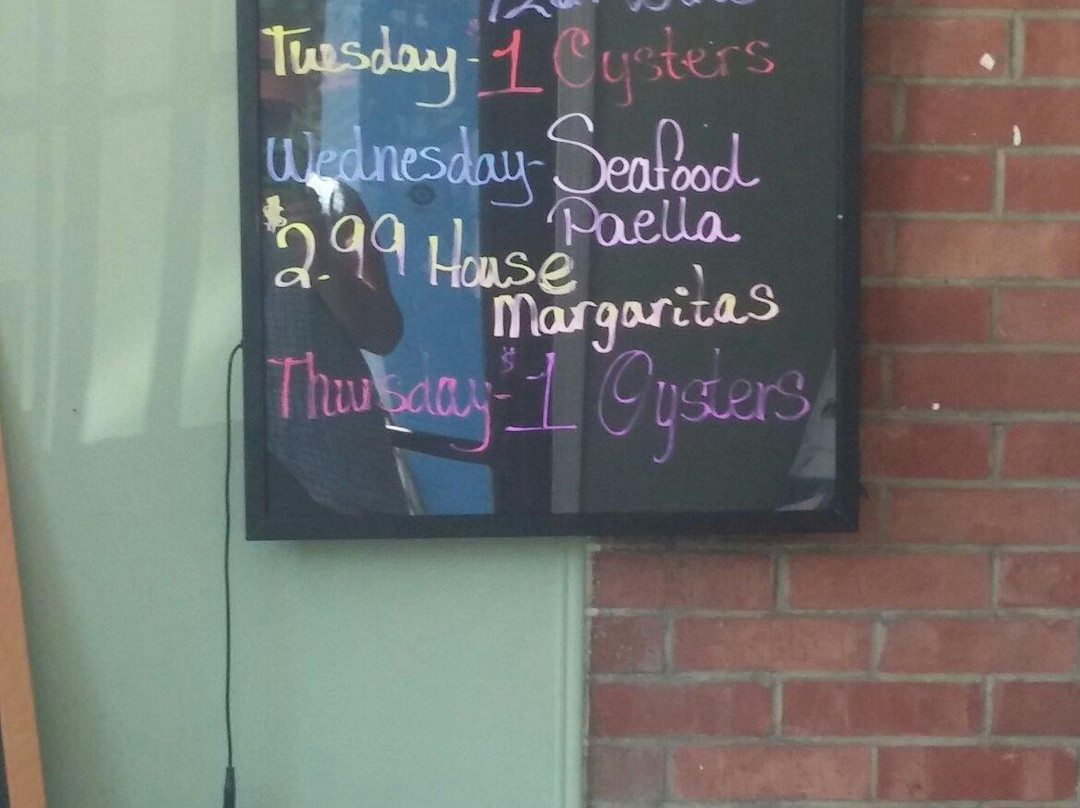 Tuesday - $1 Oysters
Wednesday - Seafood
Paella
$2.99 House
Margaritas
Thursday - $1 Oysters